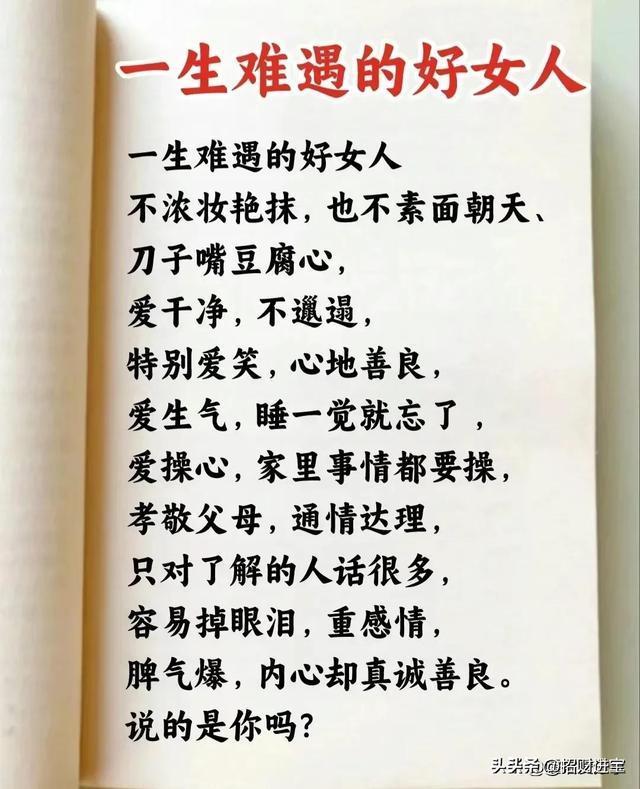 一生难遇的好女人
一生难遇的好女人
不浓妆艳抹，也不素面朝天、
刀子嘴豆腐心，
爱干净，不邋遢，
特别爱笑，心地善良，
爱生气，睡一觉就忘了，
爱操心，家里事情都要操，
孝敬父母，通情达理，
只对了解的人话很多，
容易掉眼泪，重感情，
脾气爆，内心却真诚善良。
说的是你吗？
头条@招财进宝